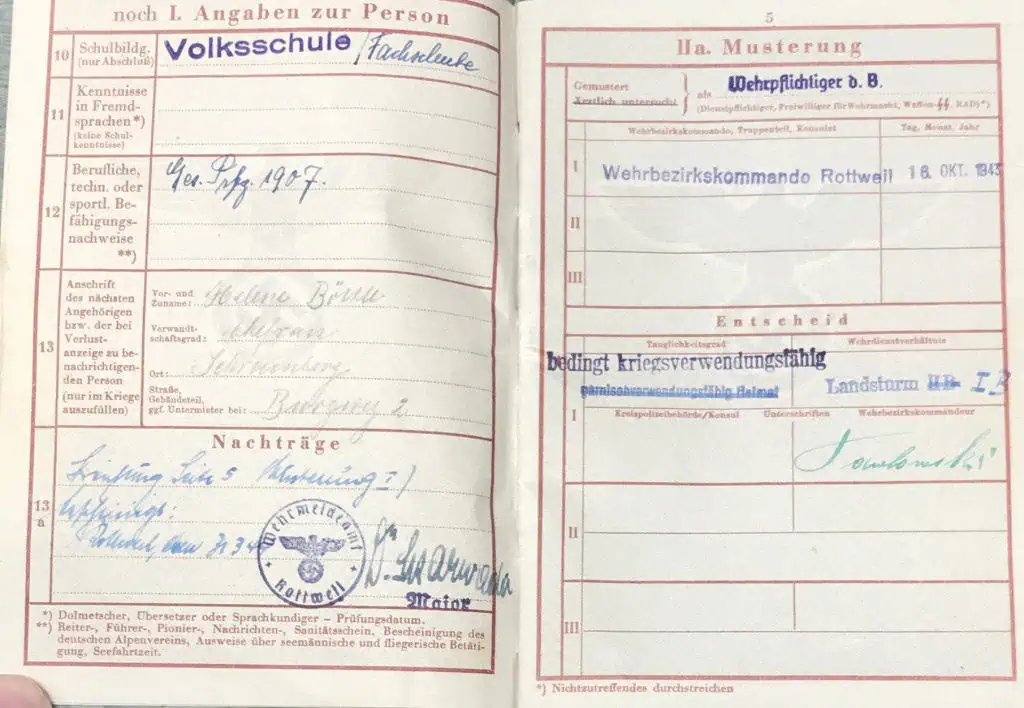 noch I. Angaben zur Person
10 Schulbildg. (nur Abschluß)
Volksschule / Fachschule
11 Kenntnisse in Fremd-
sprachen *)
(keine Schul-
kenntnisse)
12 Berufliche,
techn. oder
sportl. Be-
fähigungs-
nachweise
**)
Ges. Prfg. 1907.
13 Anschrift
des nächsten
Angehörigen
bzw. der bei
Verlust-
anzeige zu be-
nachrichtigen-
den Person
(nur im Kriege
auszufüllen)
Vor- und
Zuname: Helene
Verwandt-
schaftsgrad: Ehefrau
Ort: Schramberg
Straße,
Gebäudeteil,
ggf. Untermieter bei: 2
Nachträge
13
a
Seite 5 Musterung I)
Rottweil, den
Wehrmeldeamt
Rottweil
Major
*) Dolmetscher, Übersetzer oder Sprachkundiger – Prüfungsdatum.
**) Reiter-, Führer-, Pionier-, Nachrichten-, Sanitätsschein, Bescheinigung des
deutschen Alpenvereins, Ausweise über seemännische und fliegerische Betäti-
gung, Seefahrtzeit.
5
IIa. Musterung
Gemustert
Ärztlich untersucht
als Wehrpflichtiger d. B.
(Dienstpflichtiger, Freiwilliger für Wehrmacht, Waffen-SS, RAD) *)
Wehrbezirkskommando, Truppenteil, Konsulat
Tag, Monat, Jahr
I Wehrbezirkskommando Rottweil 18. OKT. 1943
II
III
Entscheid
Tauglichkeitsgrad
Wehrdienstverhältnis
bedingt kriegsverwendungsfähig
garnisonverwendungsfähig Heimat
Landsturm II B I B
I
Kreispolizeibehörde/Konsul Unterschriften Wehrbezirkskommandeur
II
III
*) Nichtzutreffendes durchstreichen